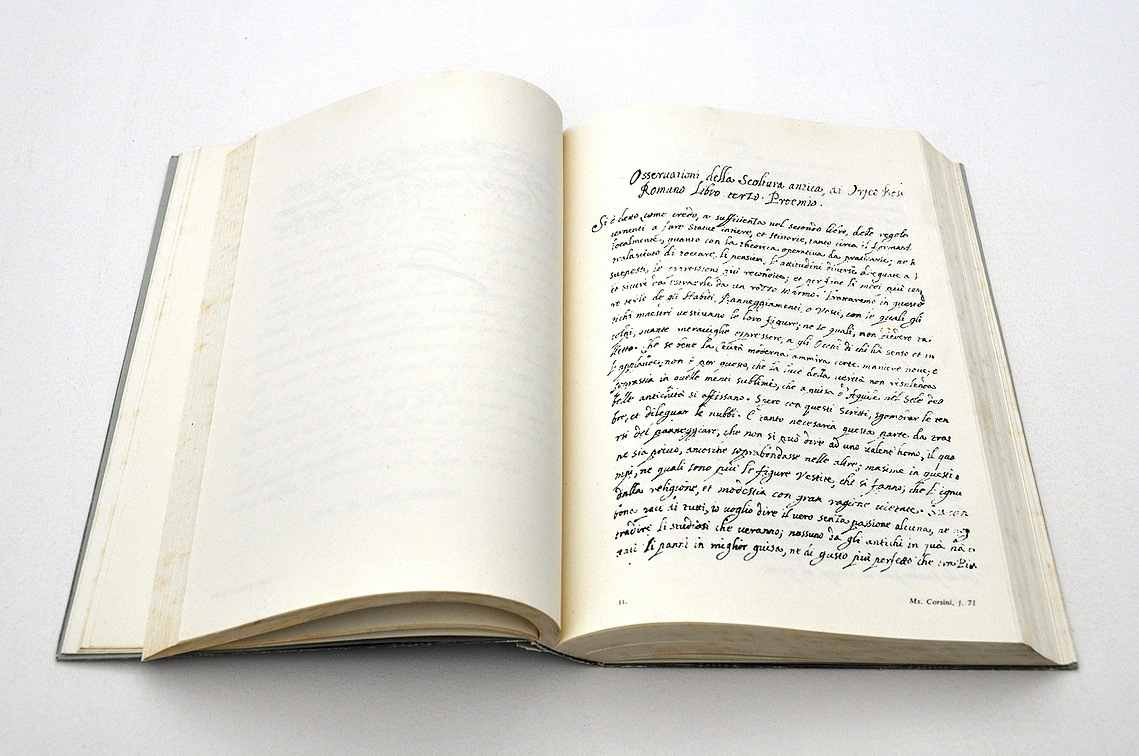 Osservationi della Scoltura antica, di Orfeo Bos
Romano Libro terzo. Proemio.
Si è detto, come credo, a sufficienza nel secondo libro, delle regole
a fare statue intiere, et Historie, tanto circa il formarl
localmente, quanto con la theorica operativa da praticarle; ne h
tralasciato di toccare, li pensieri, l'attitudini diverse adequate a i
supposti, le espressioni più recondite; et per fine li modi più
et sicuri da da un rozzo marmo. Trattaremo in questo
de gli Habiti, Panneggiamenti, o Vesti, con le quali gli
tichi maestri vestivano le loro figure; ne le quali, non
quante meraviglie expressero, a gli Occhi di chi hà senso et in
Che se bene la età moderna ammira certe maniere nove, e
non è per questo, che la luce della verità non risplenda
in quelle menti sublimi, che a guisa d'Aquile nel Sole del
belle antichità si affissano. Spero con questi Scritti, sgombrar le ten
bre, et dileguar le nubbi. È tanto necessaria questa parte da
del panneggiare, che non si può dire ad uno valent'homo, il qua
ne sia privo, ancorche soprabondasse nelle altre; masime in questi
mpi, ne quali sono più le figure vestite, che si fanno; che l'ignu
dalla religione, et modestia con gran ragione vietate.
tutti, io voglio dire il vero senza passione alcuna, ne
li studiosi che veranno; nessuno da gli antichi in quà hà
li panni in miglior guisa, ne di gusto più perfetto che
11.
Ms. Corsini, f. 71